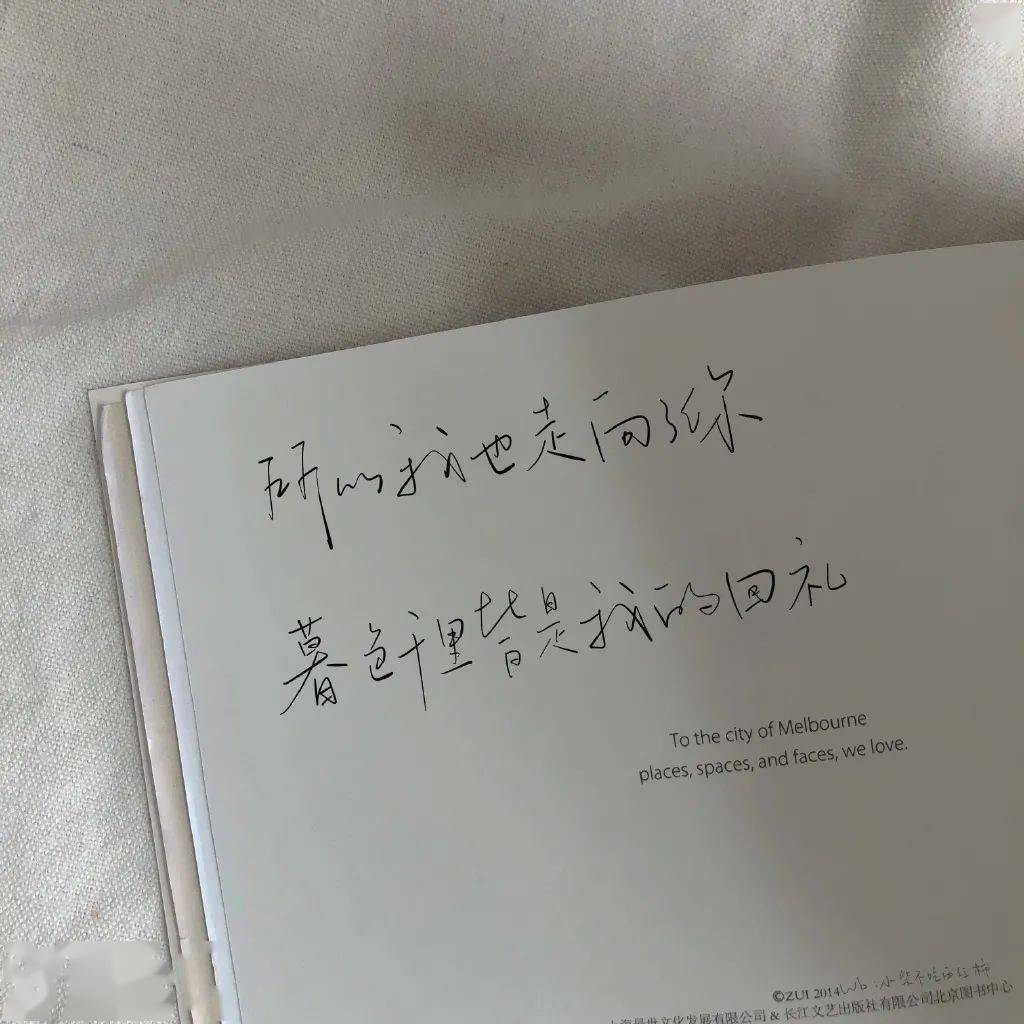 所以我也走向你
暮色千里皆是我的回礼
To the city of Melbourne
places, spaces, and faces, we love.
©ZUI 2014 wb:小柴不吃西红柿
上海最世文化发展有限公司 & 长江文艺出版社有限公司北京图书中心